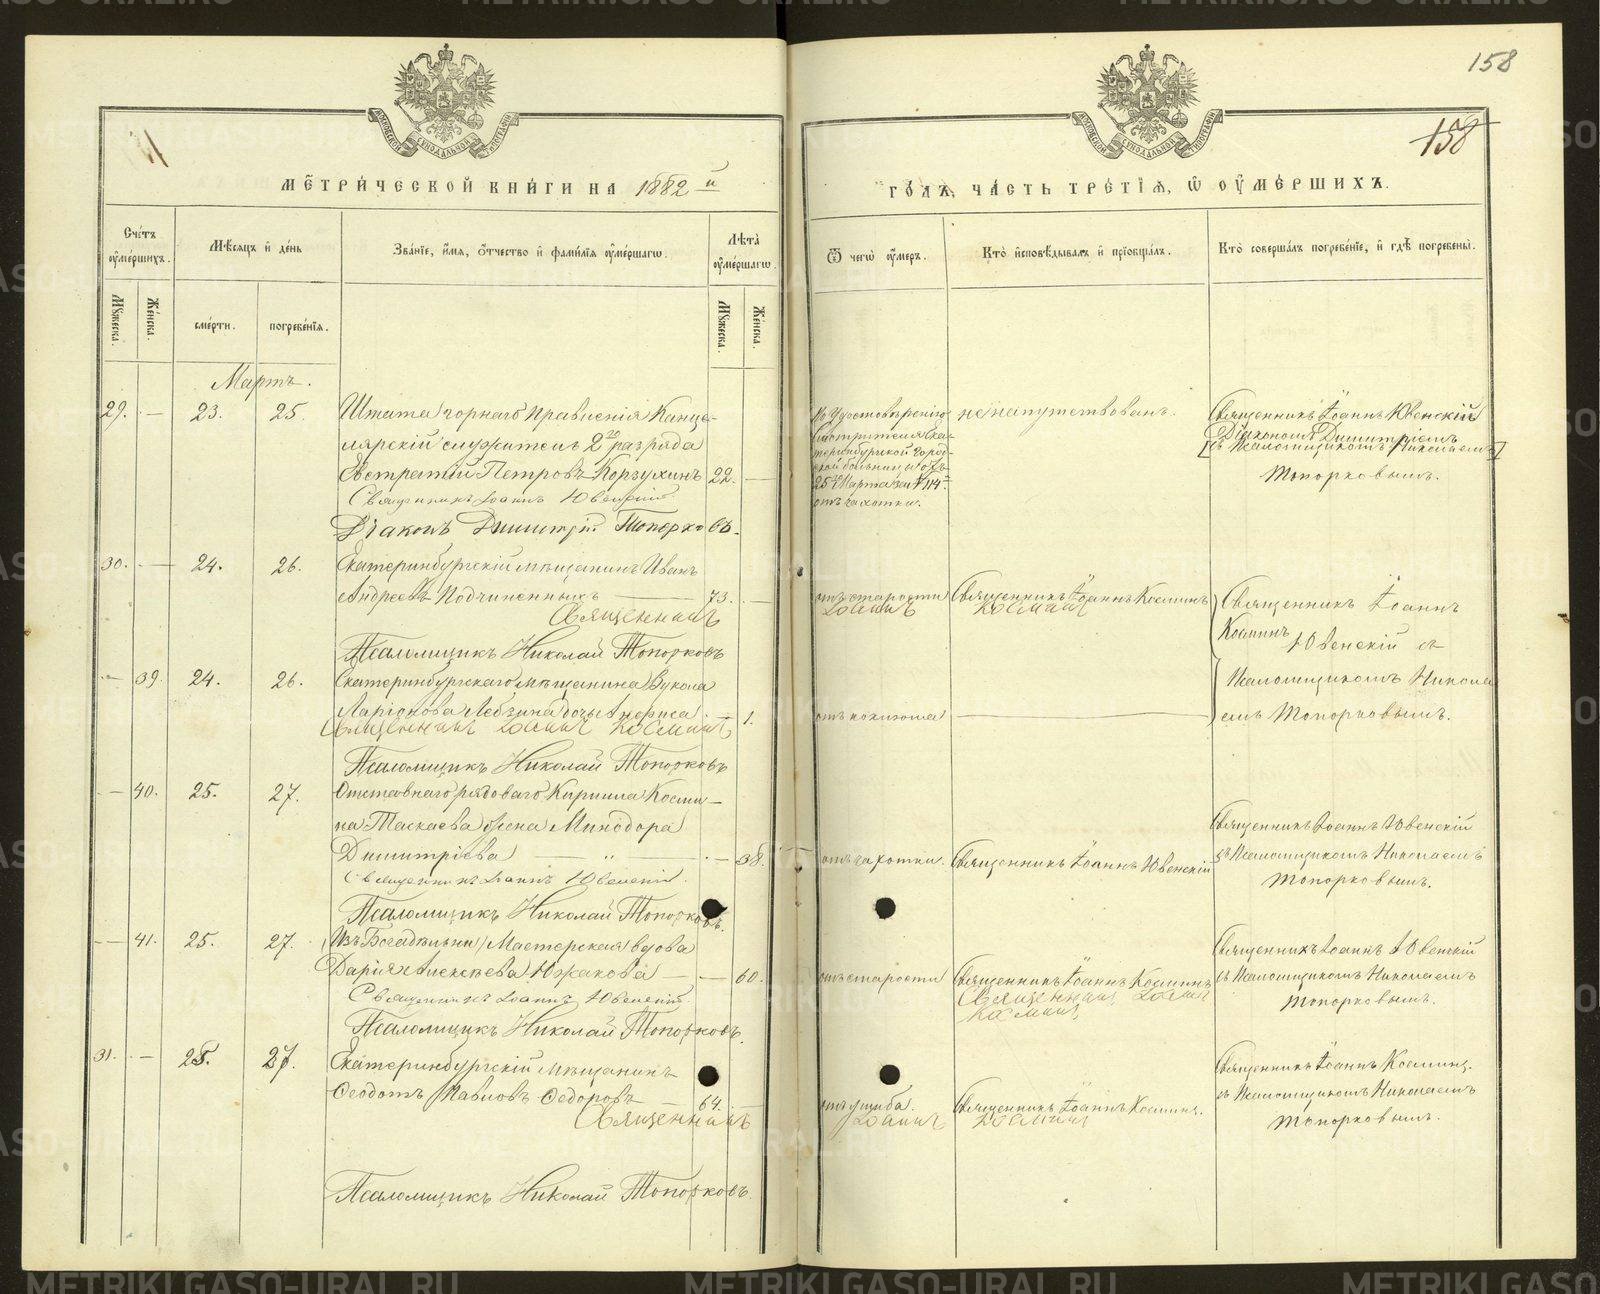 158
158
МОСКОВСКОЙ СѴНОДАЛЬНОЙ ТИПОГРАФІИ
МЕТРИЧЕСКОЙ КНИГИ НА 1882 й
ГОДЪ, ЧАСТЬ ТРЕТІЯ, Ѡ ОУМЕРШИХЪ.
Счетъ оумершихъ.
Мѣсяцъ и день
Званіе, имя, отчество и фамилія оумершагѡ.
Лѣта оумершагѡ
Ѿ чегѡ оумеръ.
Кто исповѣдывалъ и пріобщалъ.
Кто совершалъ погребеніе, и гдѣ погребены.
Мужеска.
Женска.
смерти.
погребенія.
Мужеска.
Женска.
Мартъ.
29. — 23. 25. Штата горнаго правленія Канце-
лярскій служитель 2го разряда
Евстратій Петровъ Корзухинъ 22. —
Священникъ Іоаннъ Ювенскій
Діаконъ Димитрій Топорковъ.
По удостовѣренію
Смотрителя Ека-
теринбургской город-
ской больницы отъ
25 Марта за № 114
отъ чахотки.
не напутствованъ.
Священникъ Іоаннъ Ювенскій
Діакономъ Димитріемъ
[съ Псаломщикомъ Николаемъ]
Топорковымъ.
30. — 24. 26. Екатеринбургскій мѣщанинъ Иванъ
Андреевъ Подчиненныхъ — 73. —
Священникъ
Псаломщикъ Николай Топорковъ
отъ старости
Іоаннъ
Священникъ Іоаннъ Косминъ
Косминъ
Священникъ Іоаннъ
Косминъ
Ювенскій съ
— 39. 24. 26. Екатеринбургскаго мѣщанина Вукола
Ларіонова Лебзина дочь Анфиса — 1.
Священникъ Іоаннъ Косминъ
Псаломщикъ Николай Топорковъ
отъ коклюша
Псаломщикомъ Никола
емъ Топорковымъ.
— 40. 25. 27. Отставнаго рядоваго Кирилла Косми-
на Таскаева жена Минодора
Димитріева — „ — — 38.
Священникъ Іоаннъ Ювенскій.
Псаломщикъ Николай Топорковъ.
отъ чахотки.
Священникъ Іоаннъ Ювенскій
Священникъ Іоаннъ Ювенскій
съ Псаломщикомъ Николаемъ
Топорковымъ.
— 41. 25. 27. Изъ Богадѣльни Мастерская вдова
Дарія Алексѣева Южакова — — 60.
Священникъ Іоаннъ Ювенскій.
Псаломщикъ Николай Топорковъ.
отъ старости
Священникъ Іоаннъ Косминъ
Священникъ Іоаннъ
Косминъ
Священникъ Іоаннъ Ювенскій
съ Псаломщикомъ Николаемъ
Топорковымъ.
31. — 25. 27. Екатеринбургскій мѣщанинъ
Ѳеодотъ Павловъ Ѳедоровъ — 64. —
Священникъ
Псаломщикъ Николай Топорковъ.
отъ ушиба.
Іоаннъ
Священникъ Іоаннъ Косминъ.
Косминъ
Священникъ Іоаннъ Косминъ.
съ Псаломщикомъ Николаемъ
Топорковымъ.
METRIKI.GASO-URAL.RU